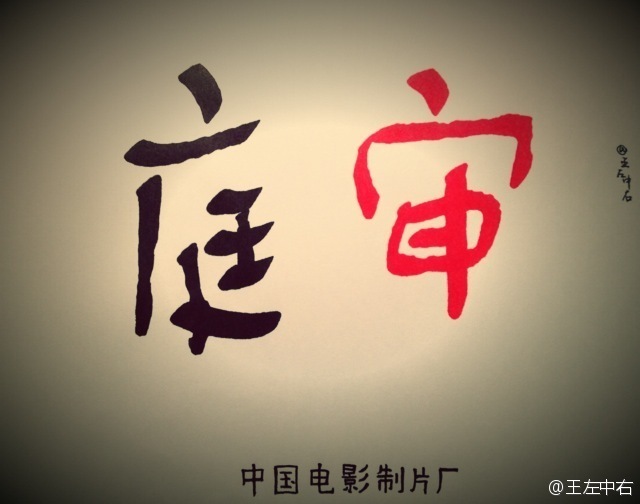 庭审
@王左中右
中国电影制片厂
@王左中右